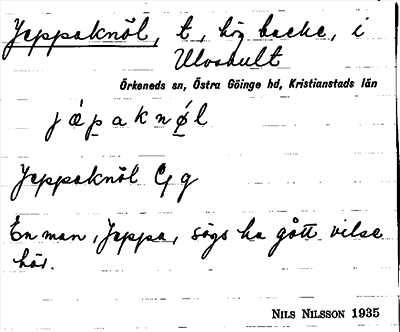 Jeppaknöl, t, hög backe, i
Ulvshult
Örkeneds sn, Östra Göinge hd, Kristianstads län
Jeppaknöl
En man, Jeppa, sägs ha gått vilse
här.
NILS NILSSON 1935